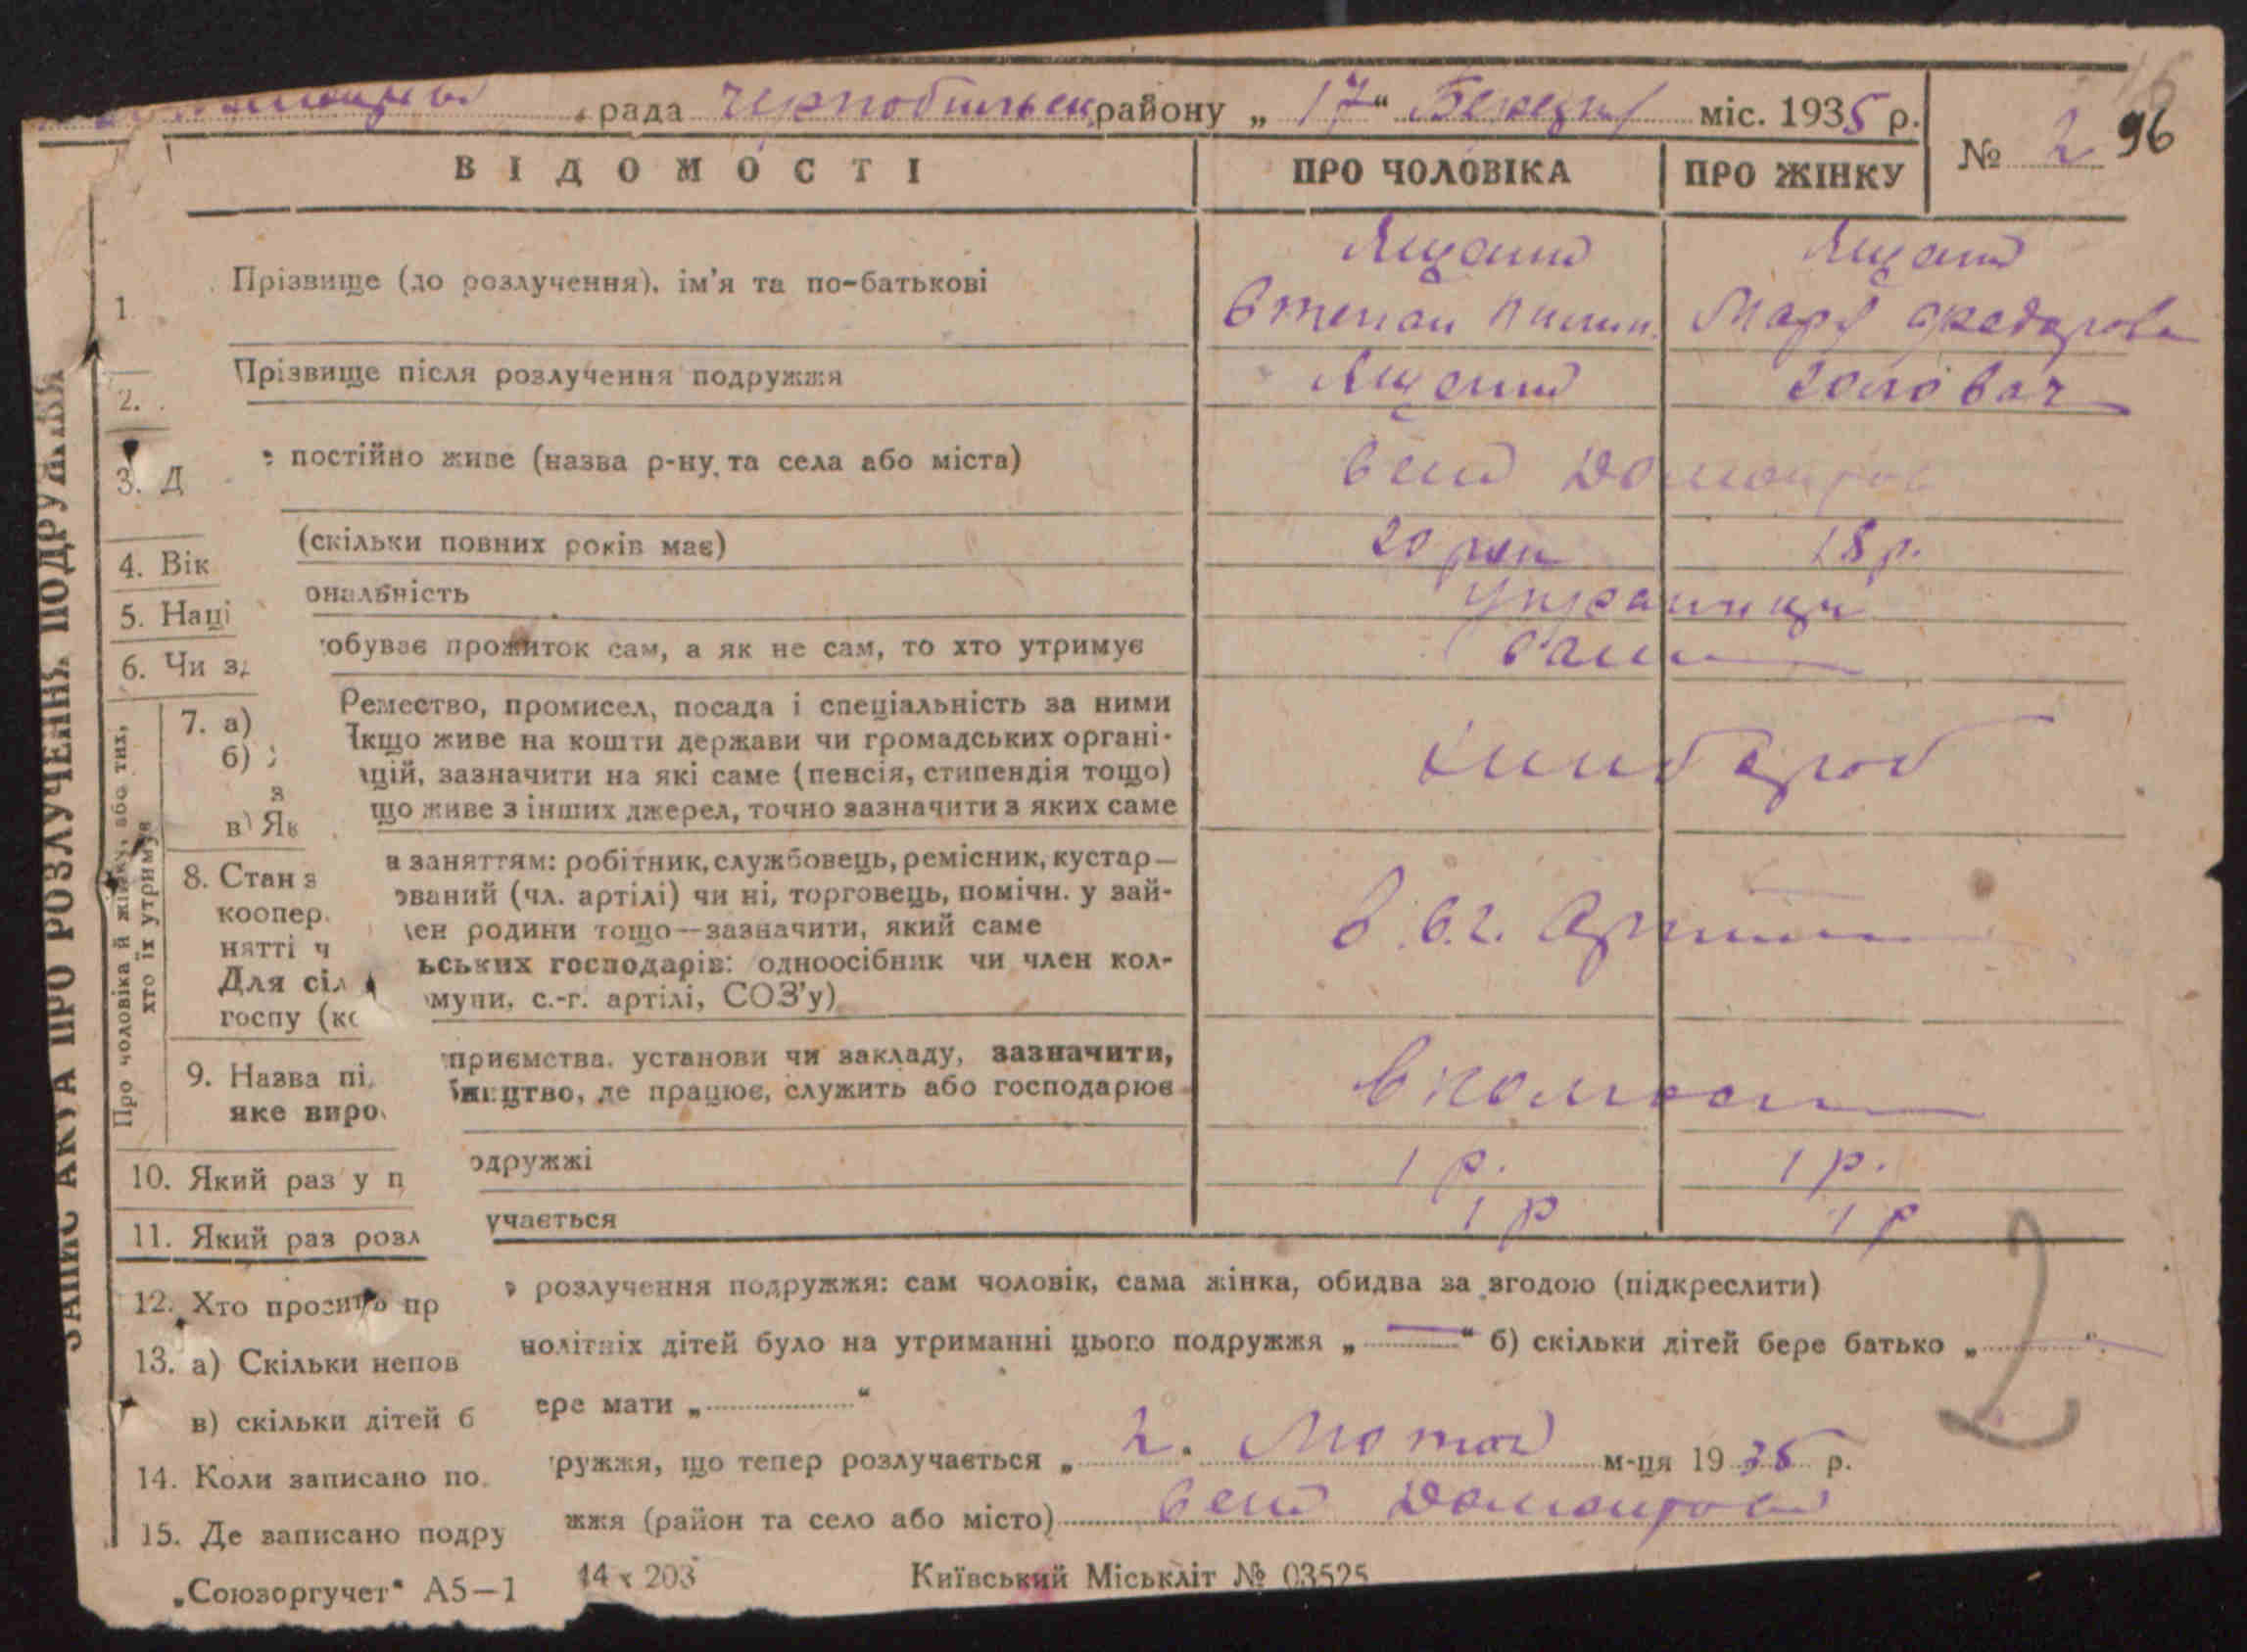 рада Чернобильськ району „ 17 “ Березня міс. 1935 р.
№ 2 96
ВІДОМОСТІ ПРО ЧОЛОВІКА ПРО ЖІНКУ
ЗАПИС АКТА ПРО РОЗЛУЧЕННЯ ПОДРУЖЖЯ
Ященко Ященко
1. Прізвище (до розлучення), ім'я та по-батькові
Степан Мари Федорова
2. Прізвище після розлучення подружжя Ященко Головач
3. Д е постійно живе (назва р-ну та села або міста) село
4. Вік (скільки повних років має) 20 рок 18 р.
5. Наці ональність українци
6. Чи зд обуває прожиток сам, а як не сам, то хто утримує сами
Про чоловіка й жінку, або тих, хто їх утримує
7. а) Ремество, промисел, посада і спеціальність за ними
б) Якщо живе на кошти держави чи громадських органі-
з ацій, зазначити на які саме (пенсія, стипендія тощо)
в) Як що живе з інших джерел, точно зазначити з яких саме
хлібороб
8. Стан з а заняттям: робітник, службовець, ремісник, кустар—
коопер ований (чл. артілі) чи ні, торговець, помічн. у зай-
нятті ч лен родини тощо—зазначити, який саме
Для сіл ьських господарів: одноосібник чи член кол-
госпу (ко муни, с.-г. артілі, СОЗ'у)
в с.г. Артили
9. Назва пі дприємства, установи чи закладу, зазначити,
яке виро бництво, де працює, служить або господарює
в колгоспи
10. Який раз у п одружжі 1 р. 1 р.
11. Який раз розл учається 1 р 1 р
12. Хто просить пр о розлучення подружжя: сам чоловік, сама жінка, обидва за згодою (підкреслити)
13. а) Скільки непов нолітніх дітей було на утриманні цього подружжя „ — “ б) скільки дітей бере батько „ — “
в) скільки дітей б ере мати „ “
14. Коли записано по дружжя, що тепер розлучається „ 2. Лютого м-ця 1935 р.
15. Де записано подру жжя (район та село або місто) село
2
„Союзоргучет“ А5—1 14 x 203 Київський Міськліт № 03525